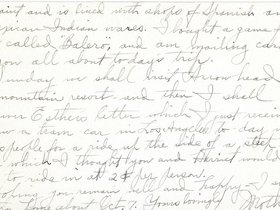 and is lined with shops of Spanish
Indian wares. I bought a game
called Balero, and am mailing
you all about today's trip.
Sunday we shall visit Arrow head
mountain resort and then I shall
Esther's letter which I just
a tram car in Los Angeles to day
people for a ride up the side of a steep
which I thought you and Harriet
to ride in at 2¢ per person.
you remain well and happy - I
about Oct. 7. Yours lovingly